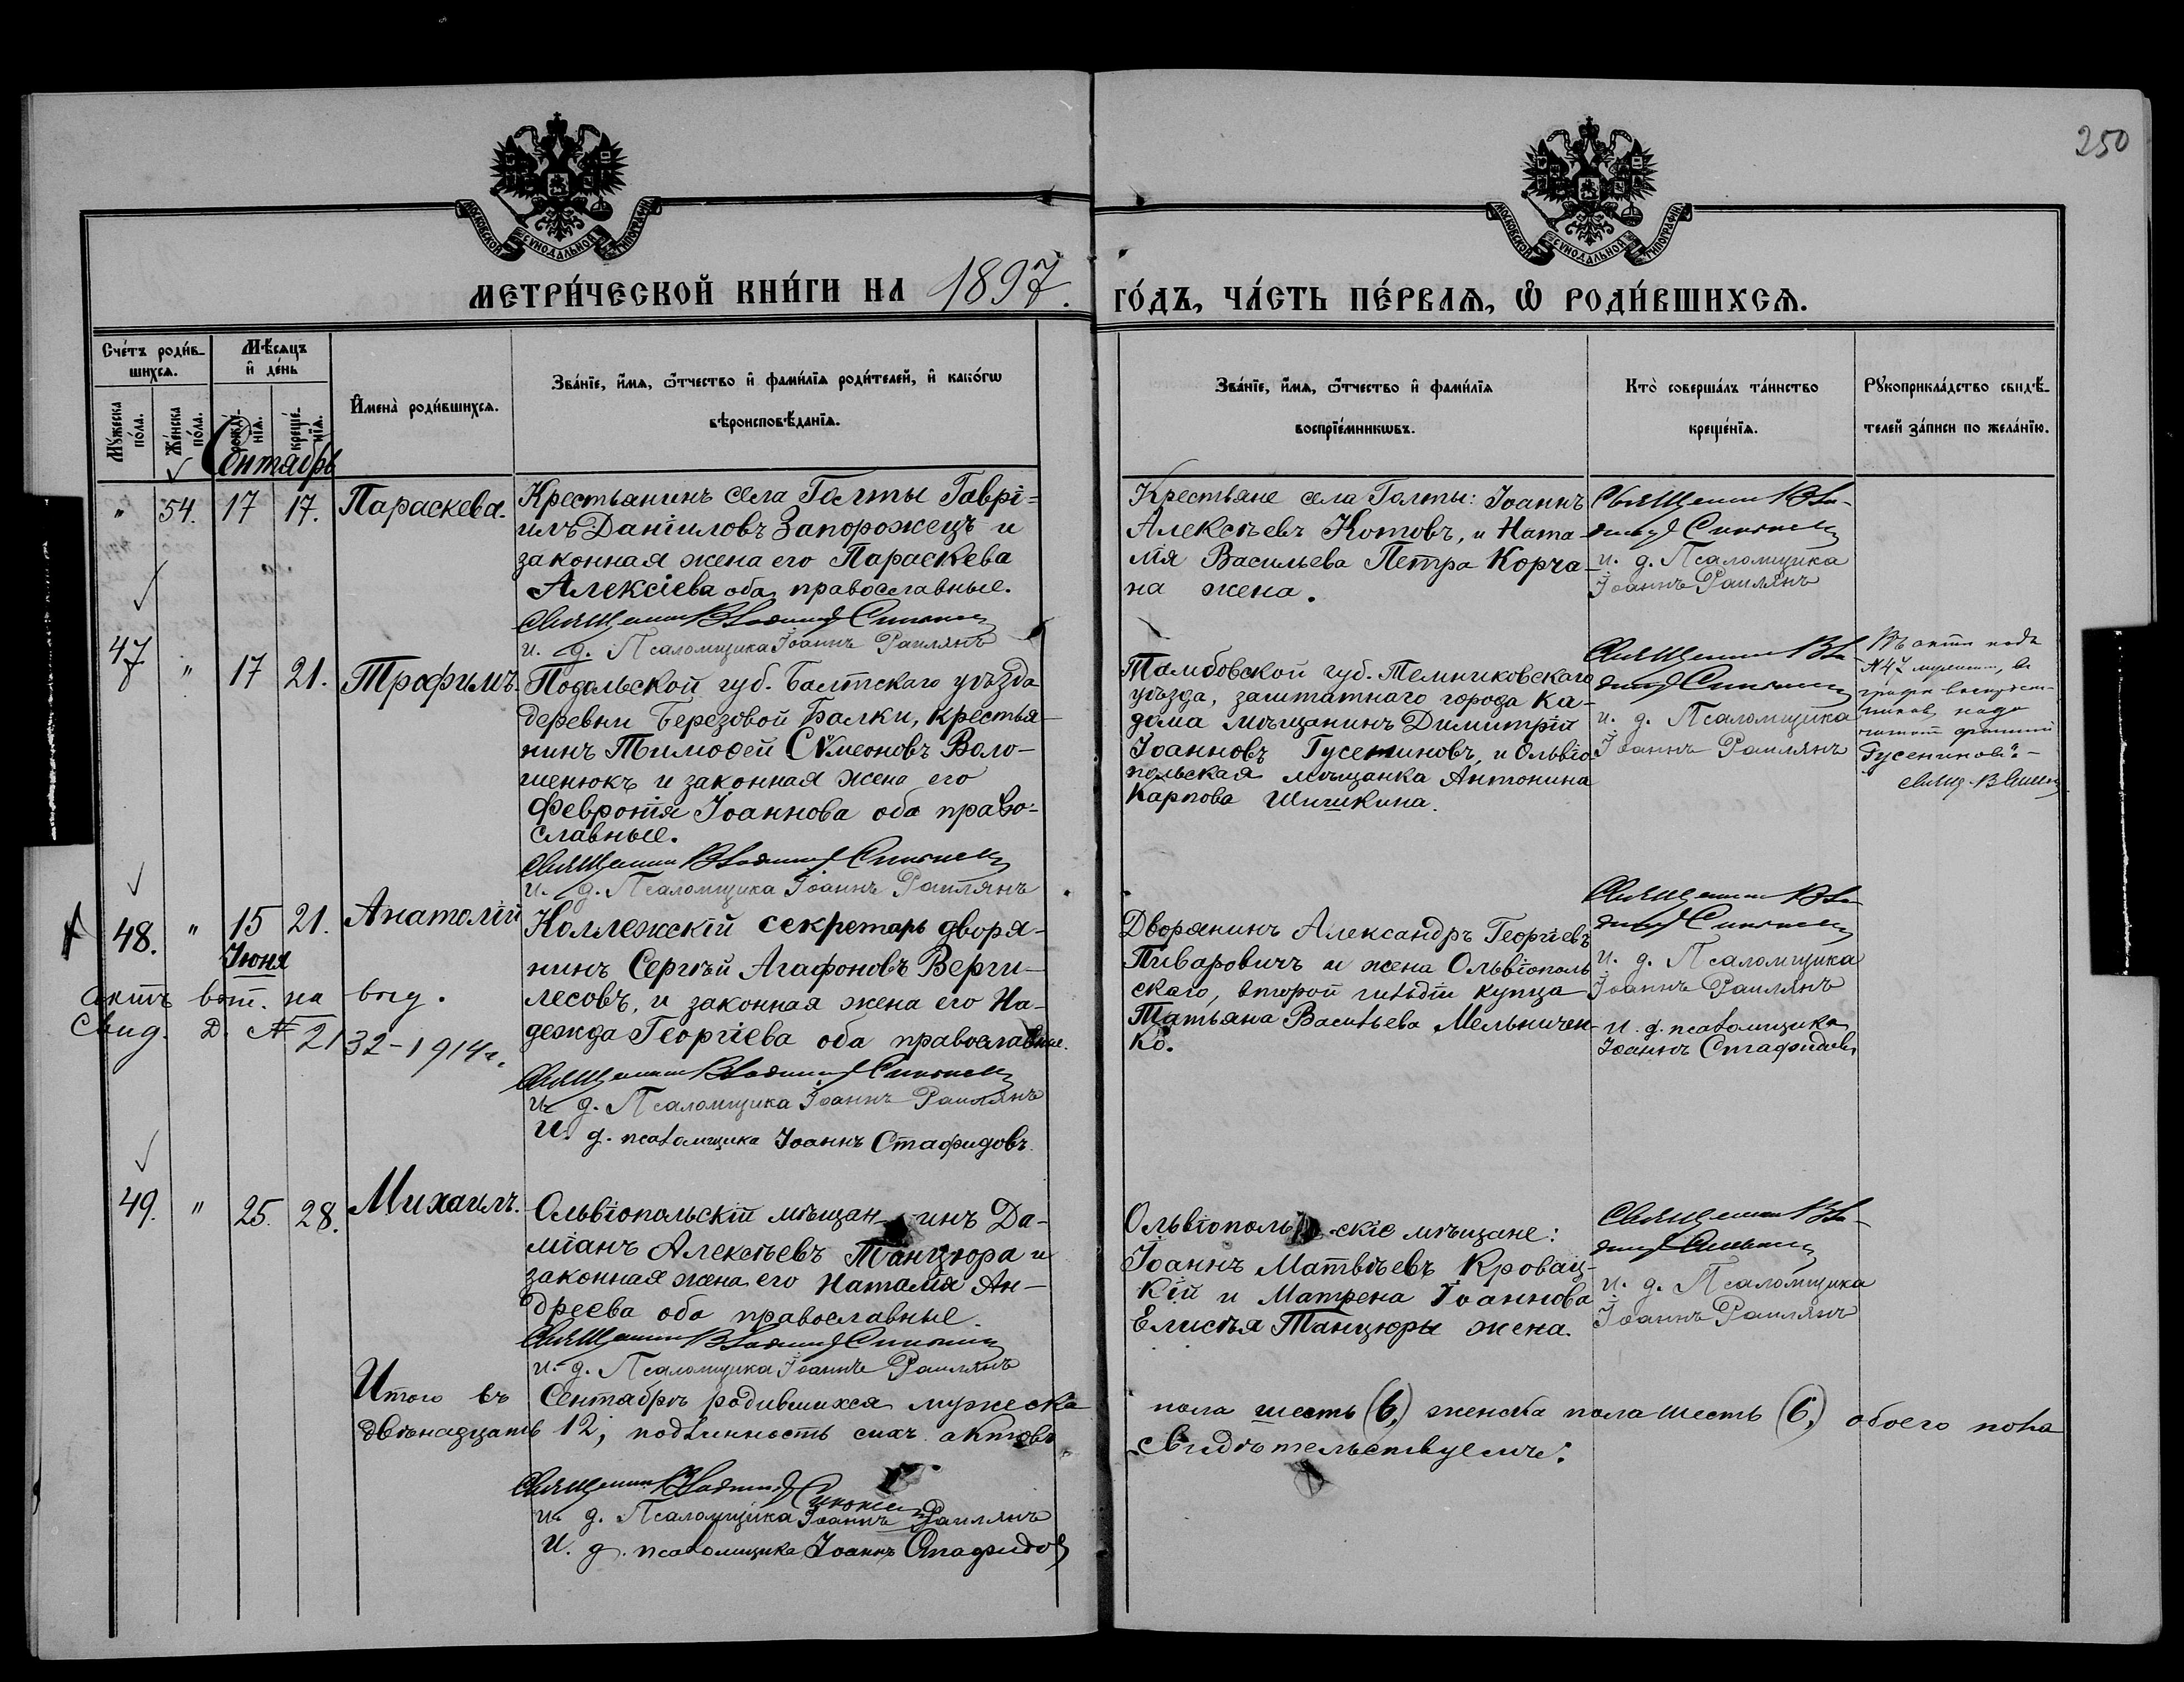 250
МОСКОВСКОЙ СУНОДАЛЬНОЙ ТИПОГРАФИИ
МОСКОВСКОЙ СУНОДАЛЬНОЙ ТИПОГРАФИИ
МЕТРИ́ЧЕСКОЙ КНИ́ГИ НА 1897.
ГО́ДЪ, ЧА́СТЬ ПЕ́РВАѦ, Ѡ҆ РОДИ́ВШИХСѦ.
Сче́тъ роди́в-
шихсѧ.
Мꙋ́жеска по́ла.
Же́нска по́ла.
Мѣ́сѧцъ
и҆ де́нь
рожде́-
нїѧ.
креще́-
нїѧ.
И҆мена̀ роди́вшихсѧ.
Зва́нїе, и҆́мѧ, ѻ҆́тчество и҆ фами́лїѧ роди́телей, и҆ како́гѡ
вѣроисповѣ́данїѧ.
Зва́нїе, и҆́мѧ, ѻ҆́тчество и҆ фами́лїѧ
воспрїе́мникѡвъ.
Кто̀ соверша́лъ та́инство
креще́нїѧ.
Рꙋкоприкла́дство свидѣ́-
телей за́писи по жела́нїю.
Сентябрь
" 54. 17 17. Параскева.
Крестьянинъ села Голты Гаврі=
илъ Даніиловъ Запорожецъ и
законная жена его Параскева
Алексіева оба православные.
Священник Владимир
и. д. Псаломщика Іоаннъ Раилянъ
Крестьяне села Голты: Іоаннъ
Алексѣевъ Котовъ, и Ната-
лія Васильева Петра Корча-
на жена.
Священник Вла-
димир
и. д. Псаломщика
Іоаннъ Раилянъ
47 " 17 21. Трофимъ.
Подольской губ. Балтскаго уѣзда
деревни Березовой Балки, крестья-
нинъ Тимоѳей Сѵмеоновъ Воло-
шенюкъ и законная жена его
Февронія Іоаннова оба право-
славные.
Священник Владимир
и. д. Псаломщика Іоаннъ Раилянъ
Тамбовской губ. Темниковскаго
уѣзда, заштатнаго города Ка-
дома мѣщанинъ Димитрій
Іоанновъ Гусетиновъ, и Ольвіо-
польская мѣщанка Антонина
Карпова Шишкина.
Священник Вла-
димир
и. д. Псаломщика
Іоаннъ Раилянъ
Въ актѣ подъ
№ 47 въ
графѣ
надо
Гусениковъ
48. " 15 21. Анатолій
Іюня
актъ на выд.
Свид. Д. № 2132-1914г.
Коллежскій секретарь дворя-
нинъ Сергѣй Агафоновъ Верги-
лесовъ, и законная жена его На-
дежда Георгіева оба православные.
Священник Владимир
и. д. Псаломщика Іоаннъ Раилянъ
И. д. псаломщика Іоаннъ Стафидовъ.
Дворянинъ Александръ Георгіевъ
Пиваровичъ и жена Ольвіополь
скаго, второй гильдіи купца
Татьяна Васильева Мельничен-
ко.
Священник Вла-
димир
и. д. Псаломщика
Іоаннъ Раилянъ
и. д. псаломщика
Іоаннъ Стафидовъ
49. " 25. 28. Михаилъ.
Ольвіопольскій мѣщан-инъ Да-
міанъ Алексѣевъ Танцюра и
законная жена его Наталія Ан-
дреева оба православные.
Священник Владимир
и. д. Псаломщика Іоаннъ Раилянъ
Ольвіополь-скіе мѣщане:
Іоаннъ Матвѣевъ Кровац-
кій и Матрена Іоаннова
Елисѣя Танцюры жена.
Священник Вла-
димир
и. д. Псаломщика
Іоаннъ Раилянъ
Итого въ Сентябрѣ родившихся мужеска
пола шесть (6,) женска пола шесть (6,) обоего пола
двѣнадцать 12; подлинность сихъ актовъ
свидѣтельствуемъ:
Священник Владимир
и. д. Псаломщика Іоаннъ Раилянъ
И. д. псаломщика Іоаннъ Стафидов